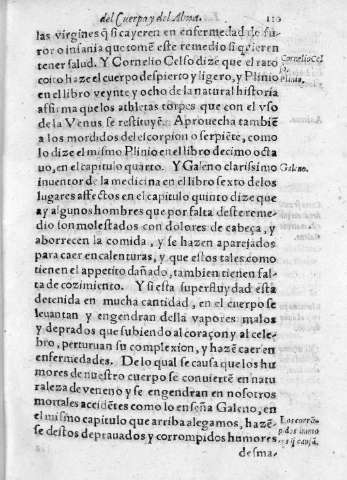 del Cuerpo y del Alma. 110
las virgines q̃ si cayeren en enfermedad de fu-
ror o insania que tomẽ este remedio si quieren
tener salud. Y Cornelio Celso dize que el rato
coito haze el cuerpo despierto y ligero, y Plinio
en el libro veynte y ocho de la natural historia
affirma que los athletas torpes que con el vso
de la Venus se restituyẽ. Aprouecha tambiẽ
a los mordidos del escorpion o serpiẽte, como
lo dize el mismo Plinio en el libro decimo octa
uo, en el capitulo quarto. Y Galeno clarissimo
inuentor de la medicina en el libro sexto de los
lugares affectos en el capitulo quinto dize que
ay algunos hombres que por falta deste reme-
dio son molestados con dolores de cabeça, y
aborrecen la comida, y se hazen aparejados
para caer en calenturas, y que estos tales como
tienen el appetito dañado, tambien tienen fal-
ta de cozimiento. Y si esta superfluydad està
detenida en mucha cantidad, en el cuerpo se
leuantan y engendran della vapores malos
y deprados que subiendo al coraçon y al cele-
bro, perturuan su complexion, y hazẽ caer en
enfermedades. De lo qual se causa que los hu
mores de nuestro cuerpo se conuiertẽ en natu
raleza de veneno y se engendran en nosotros
mortales accidẽtes como lo enseña Galeno, en
el mismo capitulo que arriba alegamos, hazẽ-
se destos deprauados y corrompidos humores
desma-
Cornelio Cel
so.
Plinio.
Galeno.
Los corrõ-
pidos humo
res q̃ causã.